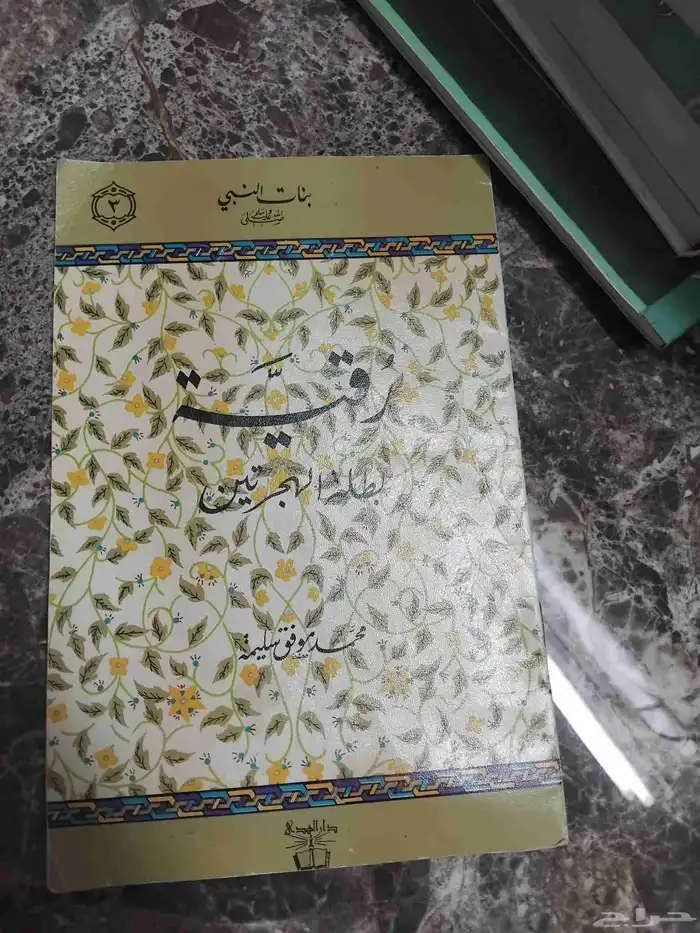 بنات النبي
ﷺ
٣
رُقيَّة
بطلة الهجرتين
محمد موفق سليمة
دار الهدى
حراج